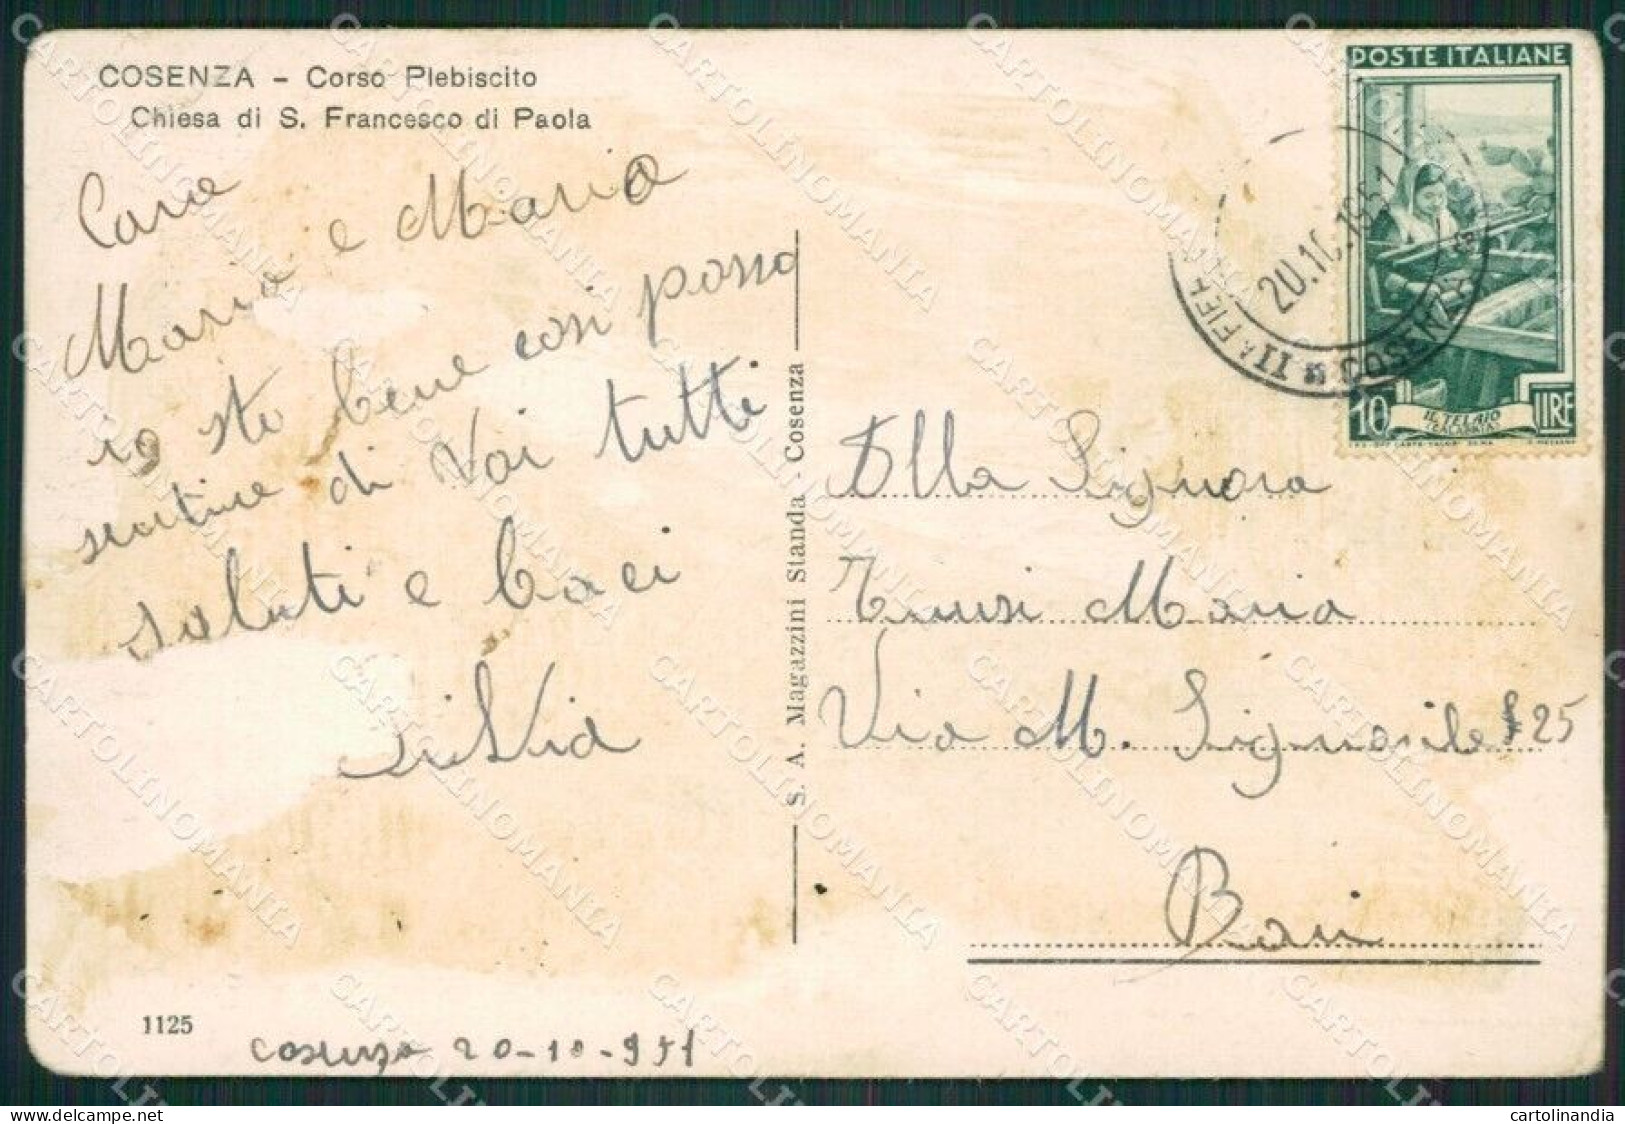 COSENZA – Corso Plebiscito
Chiesa di S. Francesco di Paola
Cara
Maria e Mario
io sto bene così posso
sentire di Voi tutti
saluti e baci
Silvia
1125
Cosenza 20-10-951
S. A. Magazzini Standa - Cosenza
POSTE ITALIANE
10 LIRE
IL TELAIO
IIª FIERA COSENZA
20.10.1951
Alla Signora
Maria
Via M. Signorile 25
Bari
CARTOLINOMANIA
cartolinandia